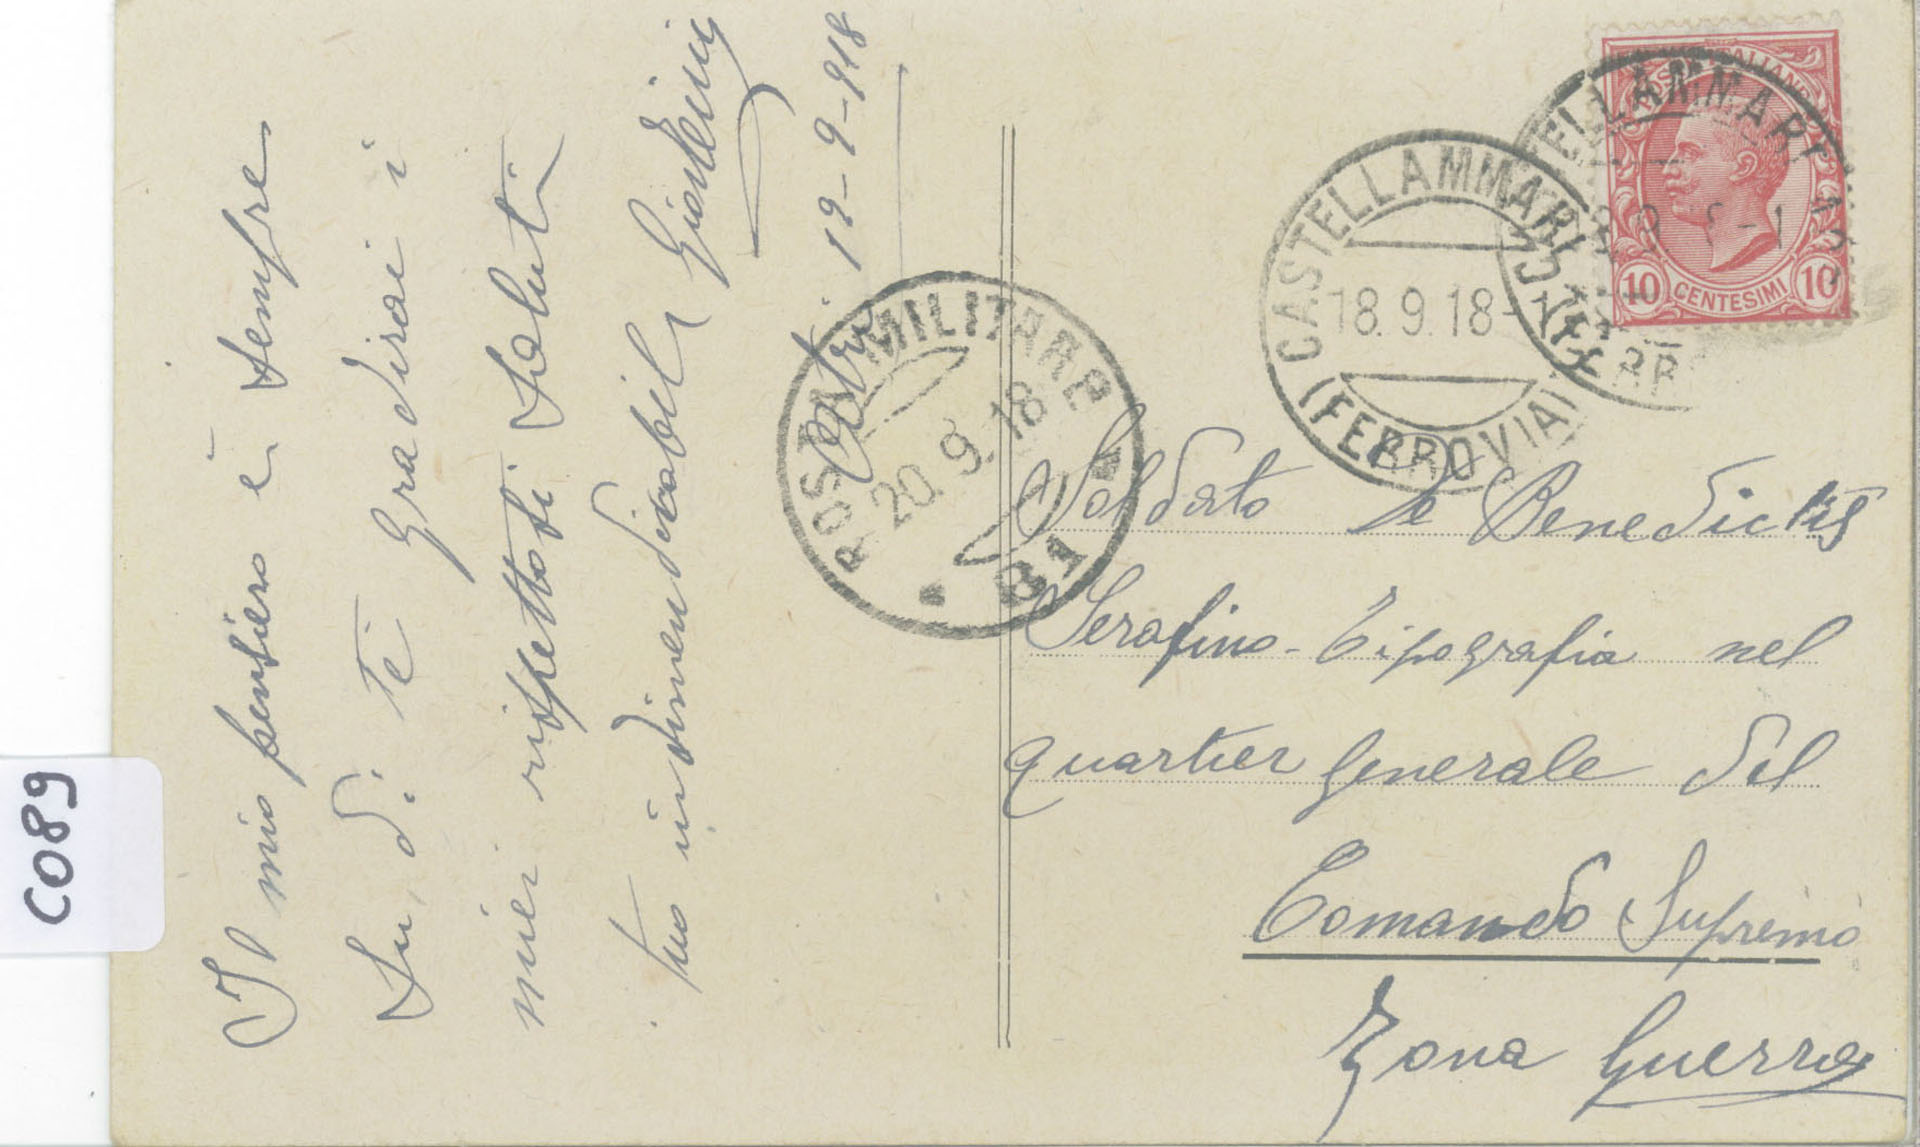 Il mio pensiero è sempre
su di Te Gradirai i
miei rispettosi saluti
tuo indimendicabile
19-9-918
C089
POSTA MILITARE
20.9.18
81
CASTELLAMMAR
18.9.18-1
(FERROVIA)
TELLAMMAR
FERR
POSTE ITALIANE
10 CENTESIMI 10
Soldato De Benedictis
Serafino - Tipografia nel
quartier Generale del
Comando Supremo
Zona Guerra